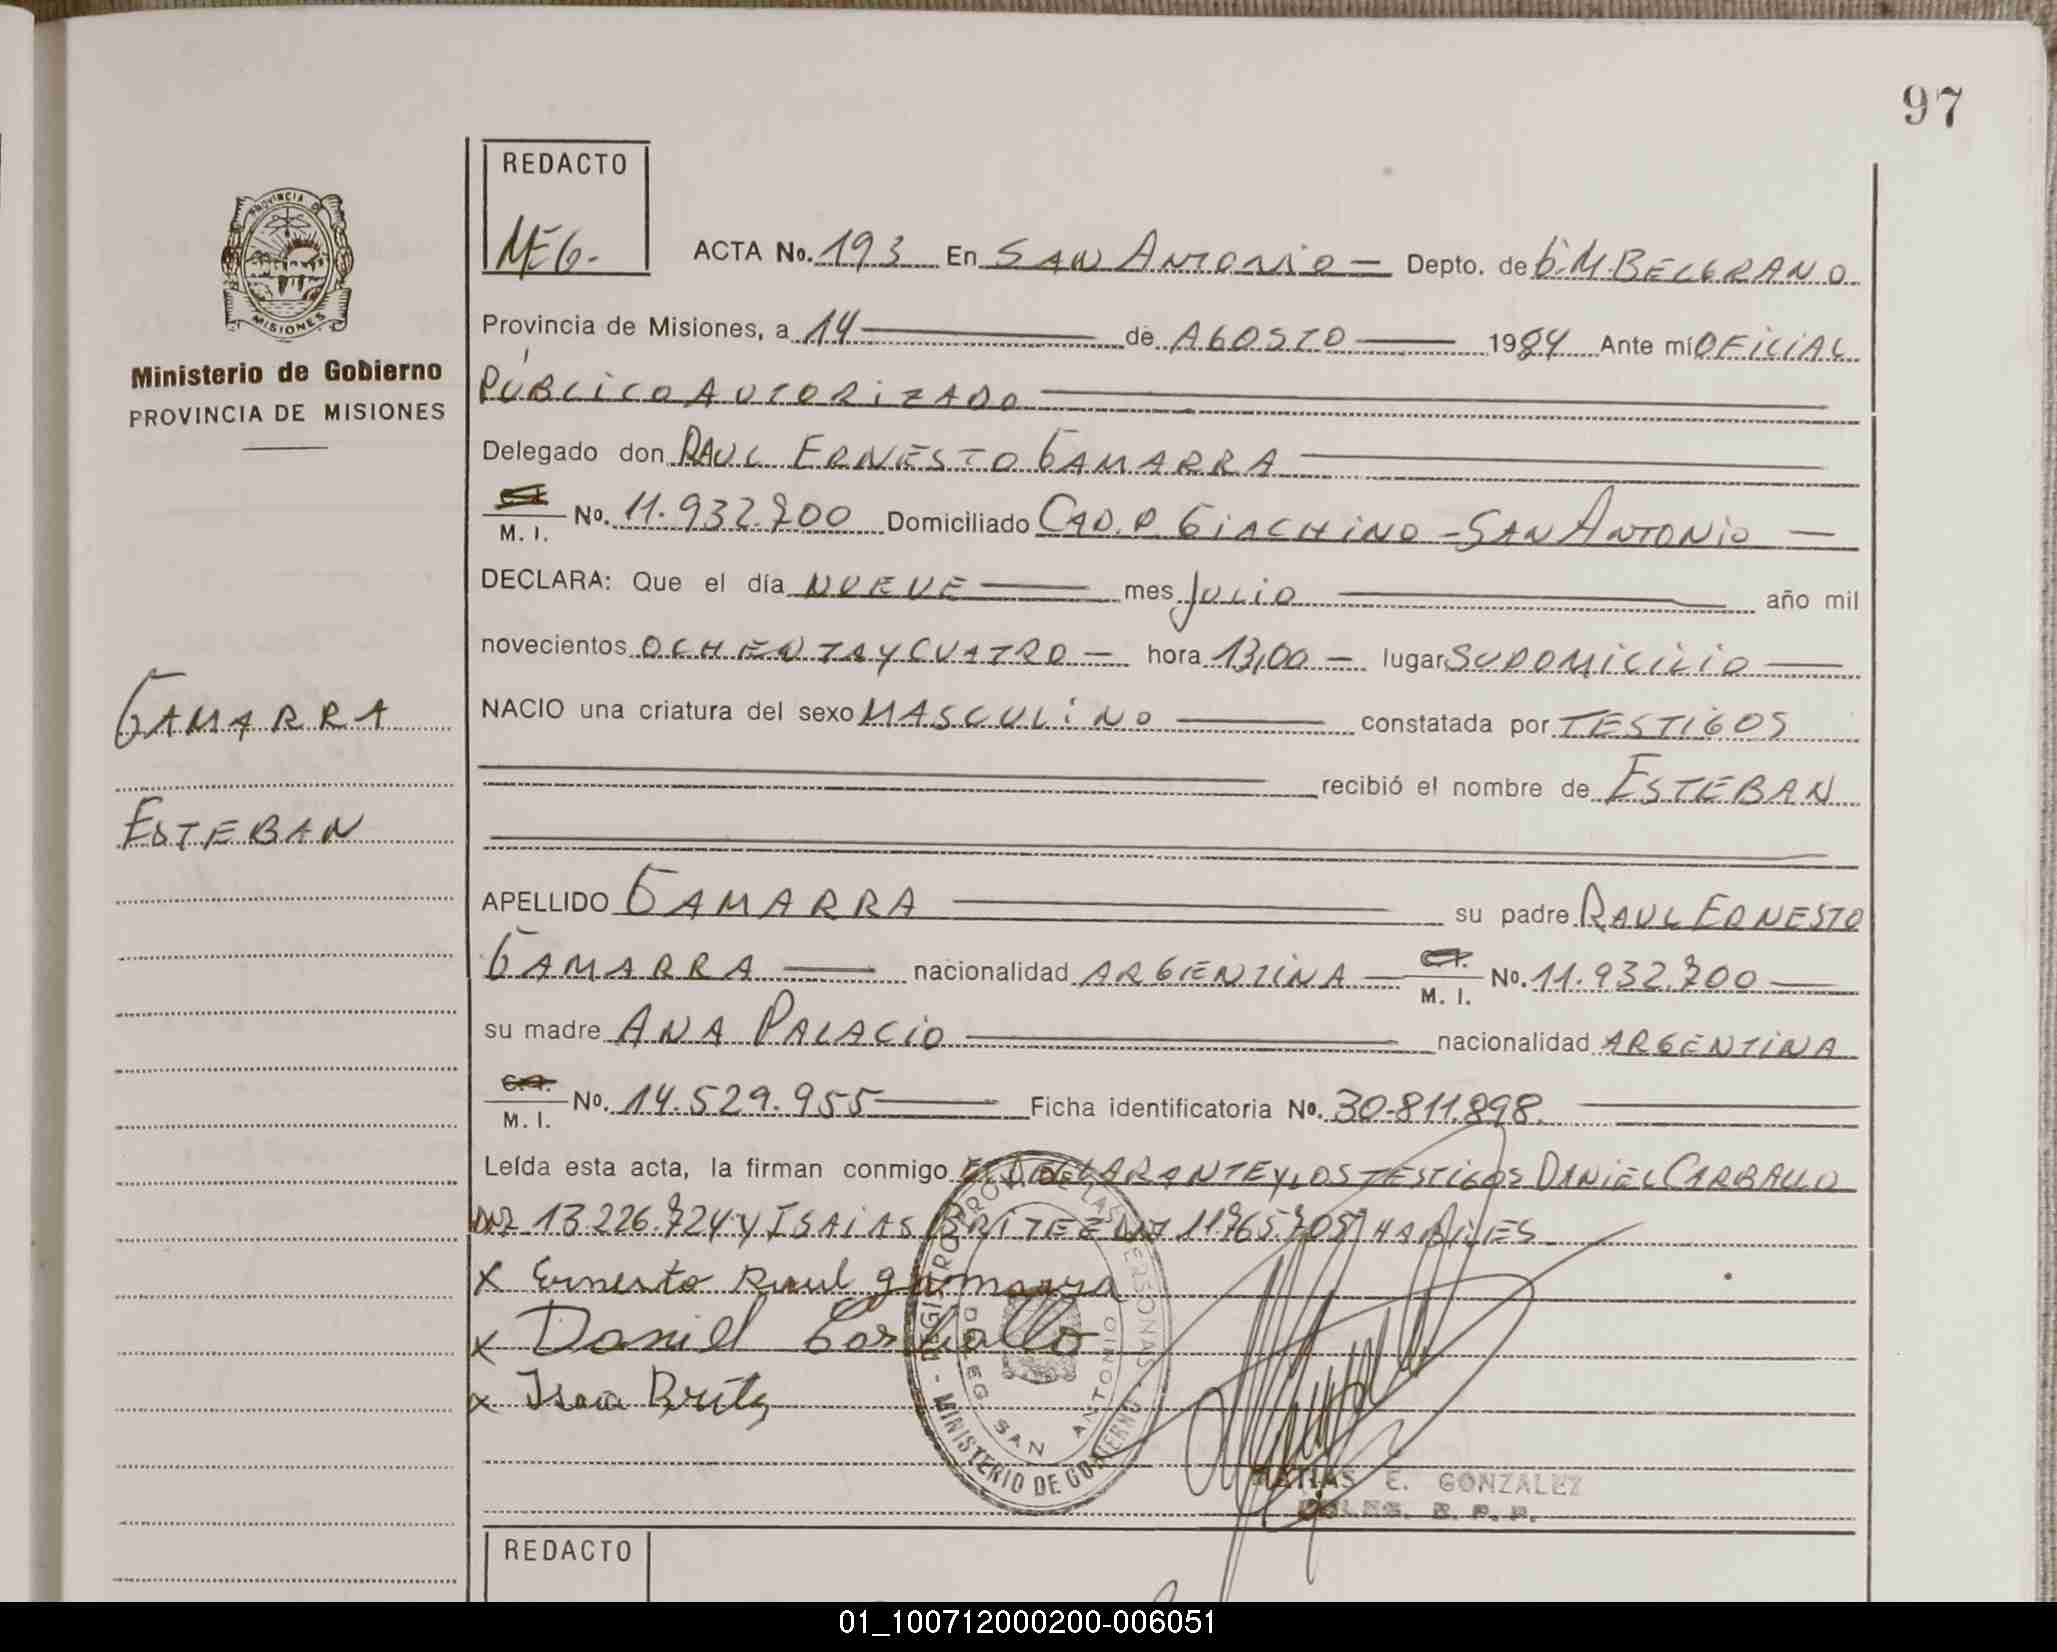 97
REDACTO
MEG.
PROVINCIA DE
MISIONES
Ministerio de Gobierno
PROVINCIA DE MISIONES
GAMARRA
ESTEBAN
ACTA No. 193 En SAN ANTONIO — Depto. de G.M. BELGRANO
Provincia de Misiones, a 14 — de AGOSTO — 1984 Ante mí OFICIAL
PÚBLICO AUTORIZADO —
Delegado don RAUL ERNESTO GAMARRA —
M. I. No. 11.932.700 Domiciliado CAD. P. GIACHINO - SAN ANTONIO —
DECLARA: Que el día NUEVE — mes JULIO — año mil
novecientos OCHENTA Y CUATRO — hora 13,00 — lugar SU DOMICILIO —
NACIO una criatura del sexo MASCULINO — constatada por TESTIGOS
recibió el nombre de ESTEBAN
APELLIDO GAMARRA — su padre RAUL ERNESTO
GAMARRA — nacionalidad ARGENTINA — C.I. M. I. No. 11.932.700 —
su madre ANA PALACIO — nacionalidad ARGENTINA
C.I. M. I. No. 14.529.955 — Ficha identificatoria No. 30.811.898. —
Leída esta acta, la firman conmigo EL DECLARANTE Y LOS TESTIGOS DANIEL CARBALLO
DNI 13.226.724 Y ISAIAS BRITEZ DNI 11.765.705 HABILES
x Ernesto Raul gamarra
x Daniel Carballo
x Isaia Britez
REGISTRO PROV. DE LAS PERSONAS - MINISTERIO DE GOBIERNO -
DELEG. SAN ANTONIO
MATIAS E. GONZALEZ
DELEG. R. P. P.
REDACTO
01_100712000200-006051